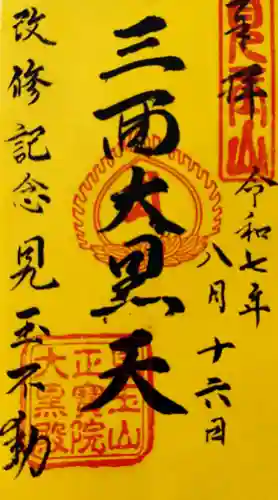 奉拝
令和七年
八月十六日
三面大黒天
改修記念 見玉不動
見玉山
正寶院
大黒殿